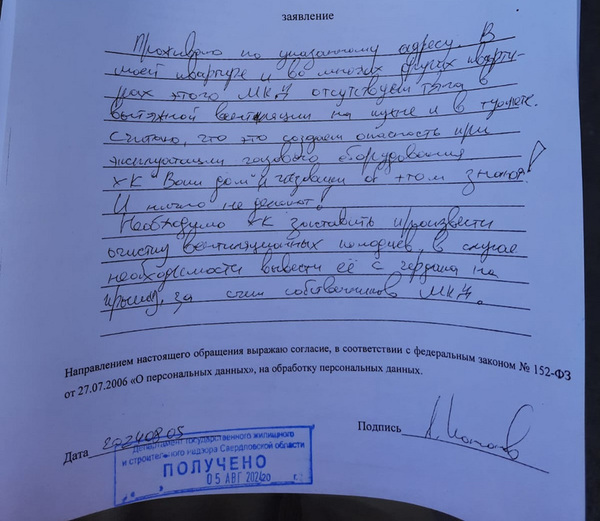 заявление
Проживаю по указанному адресу. В
моей квартире и во многих других кварти-
рах этого МКД отсутствует тяга в
вытяжной вентиляции на кухне и в туалете.
Считаю, что это создаёт опасность при
эксплуатации газового оборудования
УК Ваш дом и газовщики об этом знают!
И ничего не делают!
Необходимо УК заставить произвести
очистку вентиляционных колодцев, в случае
необходимости вывести её с чердака на
крышу, за счёт собственников МКД.
Направлением настоящего обращения выражаю согласие, в соответствии с федеральным законом № 152-ФЗ
от 27.07.2006 «О персональных данных», на обработку персональных данных.
Дата 20240805
Подпись
Департамент государственного жилищного
и строительного надзора Свердловской области
ПОЛУЧЕНО
05 АВГ 2024 г.